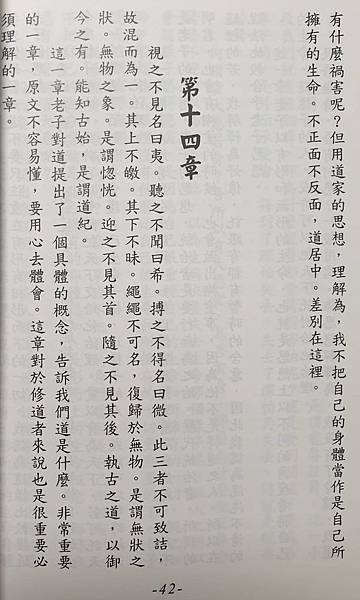 有什麼禍害呢？但用道家的思想，理解為，我不把自己的身體當作是自己所
擁有的生命。不正面不反面，道居中。差別在這裡。
第十四章
視之不見名曰夷。聽之不聞曰希。搏之不得名曰微。此三者不可致詰，
故混而為一。其上不皦。其下不昧。繩繩不可名，復歸於無物。是謂無狀之
狀。無物之象。是謂惚恍。迎之不見其首。隨之不見其後。執古之道，以御
今之有。能知古始，是謂道紀。
這一章老子對道提出了一個具體的概念，告訴我們道是什麼。非常重要
的一章，原文不容易懂，要用心去體會。這章對於修道者來說也是很重要必
須理解的一章。
-42-